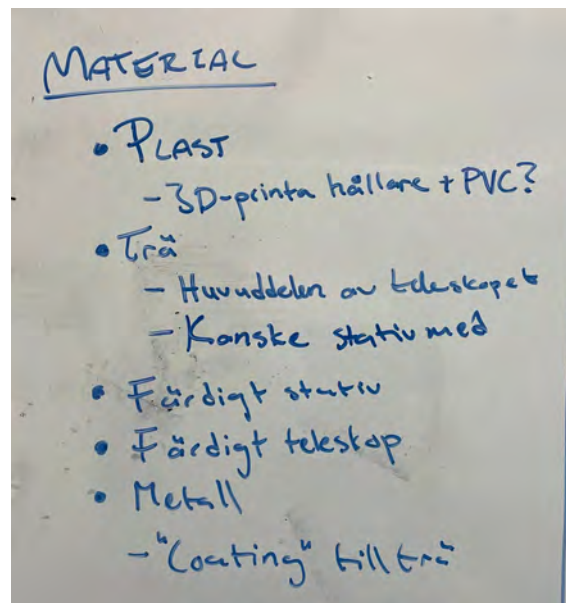 MATERIAL
• PLAST
- 3D-printa hållare + PVC?
• Trä
- Huvuddelen av teleskopet
- Kanske stativ med
• Färdigt stativ
• Färdigt teleskop
• Metall
- "Coating" till trä